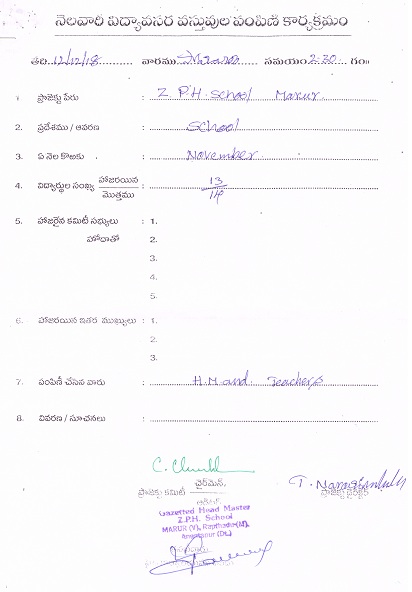 నెలవారీ విద్యావసర వస్తువుల పంపిణీ కార్యక్రమం
తేది. 12/12/18. వారము సమయం 2.30 గం॥
1. ప్రాజెక్టు పేరు : Z.P.H. School Marur
2. ప్రదేశము / ఆవరణ : School
3. ఏ నెల కొఱకు : November
4. విద్యార్థుల సంఖ్య హాజరయిన / మొత్తము : 13 / 14
5. హాజరైన కమిటీ సభ్యులు : 1.
హోదాతో 2.
3.
4.
5.
6. హాజరయిన ఇతర ముఖ్యులు : 1.
2.
3.
7. పంపిణీ చేసిన వారు : H.M and Teachers
8. వివరణ / సూచనలు :
ఛైర్మెన్,
ప్రాజెక్టు కమిటీ
ప్రాజెక్ట్ డైరెక్టర్
Gazetted Head Master
Z.P.H. School
MARUR (V), Rapthadu(M),
Anantapur (Dt.)